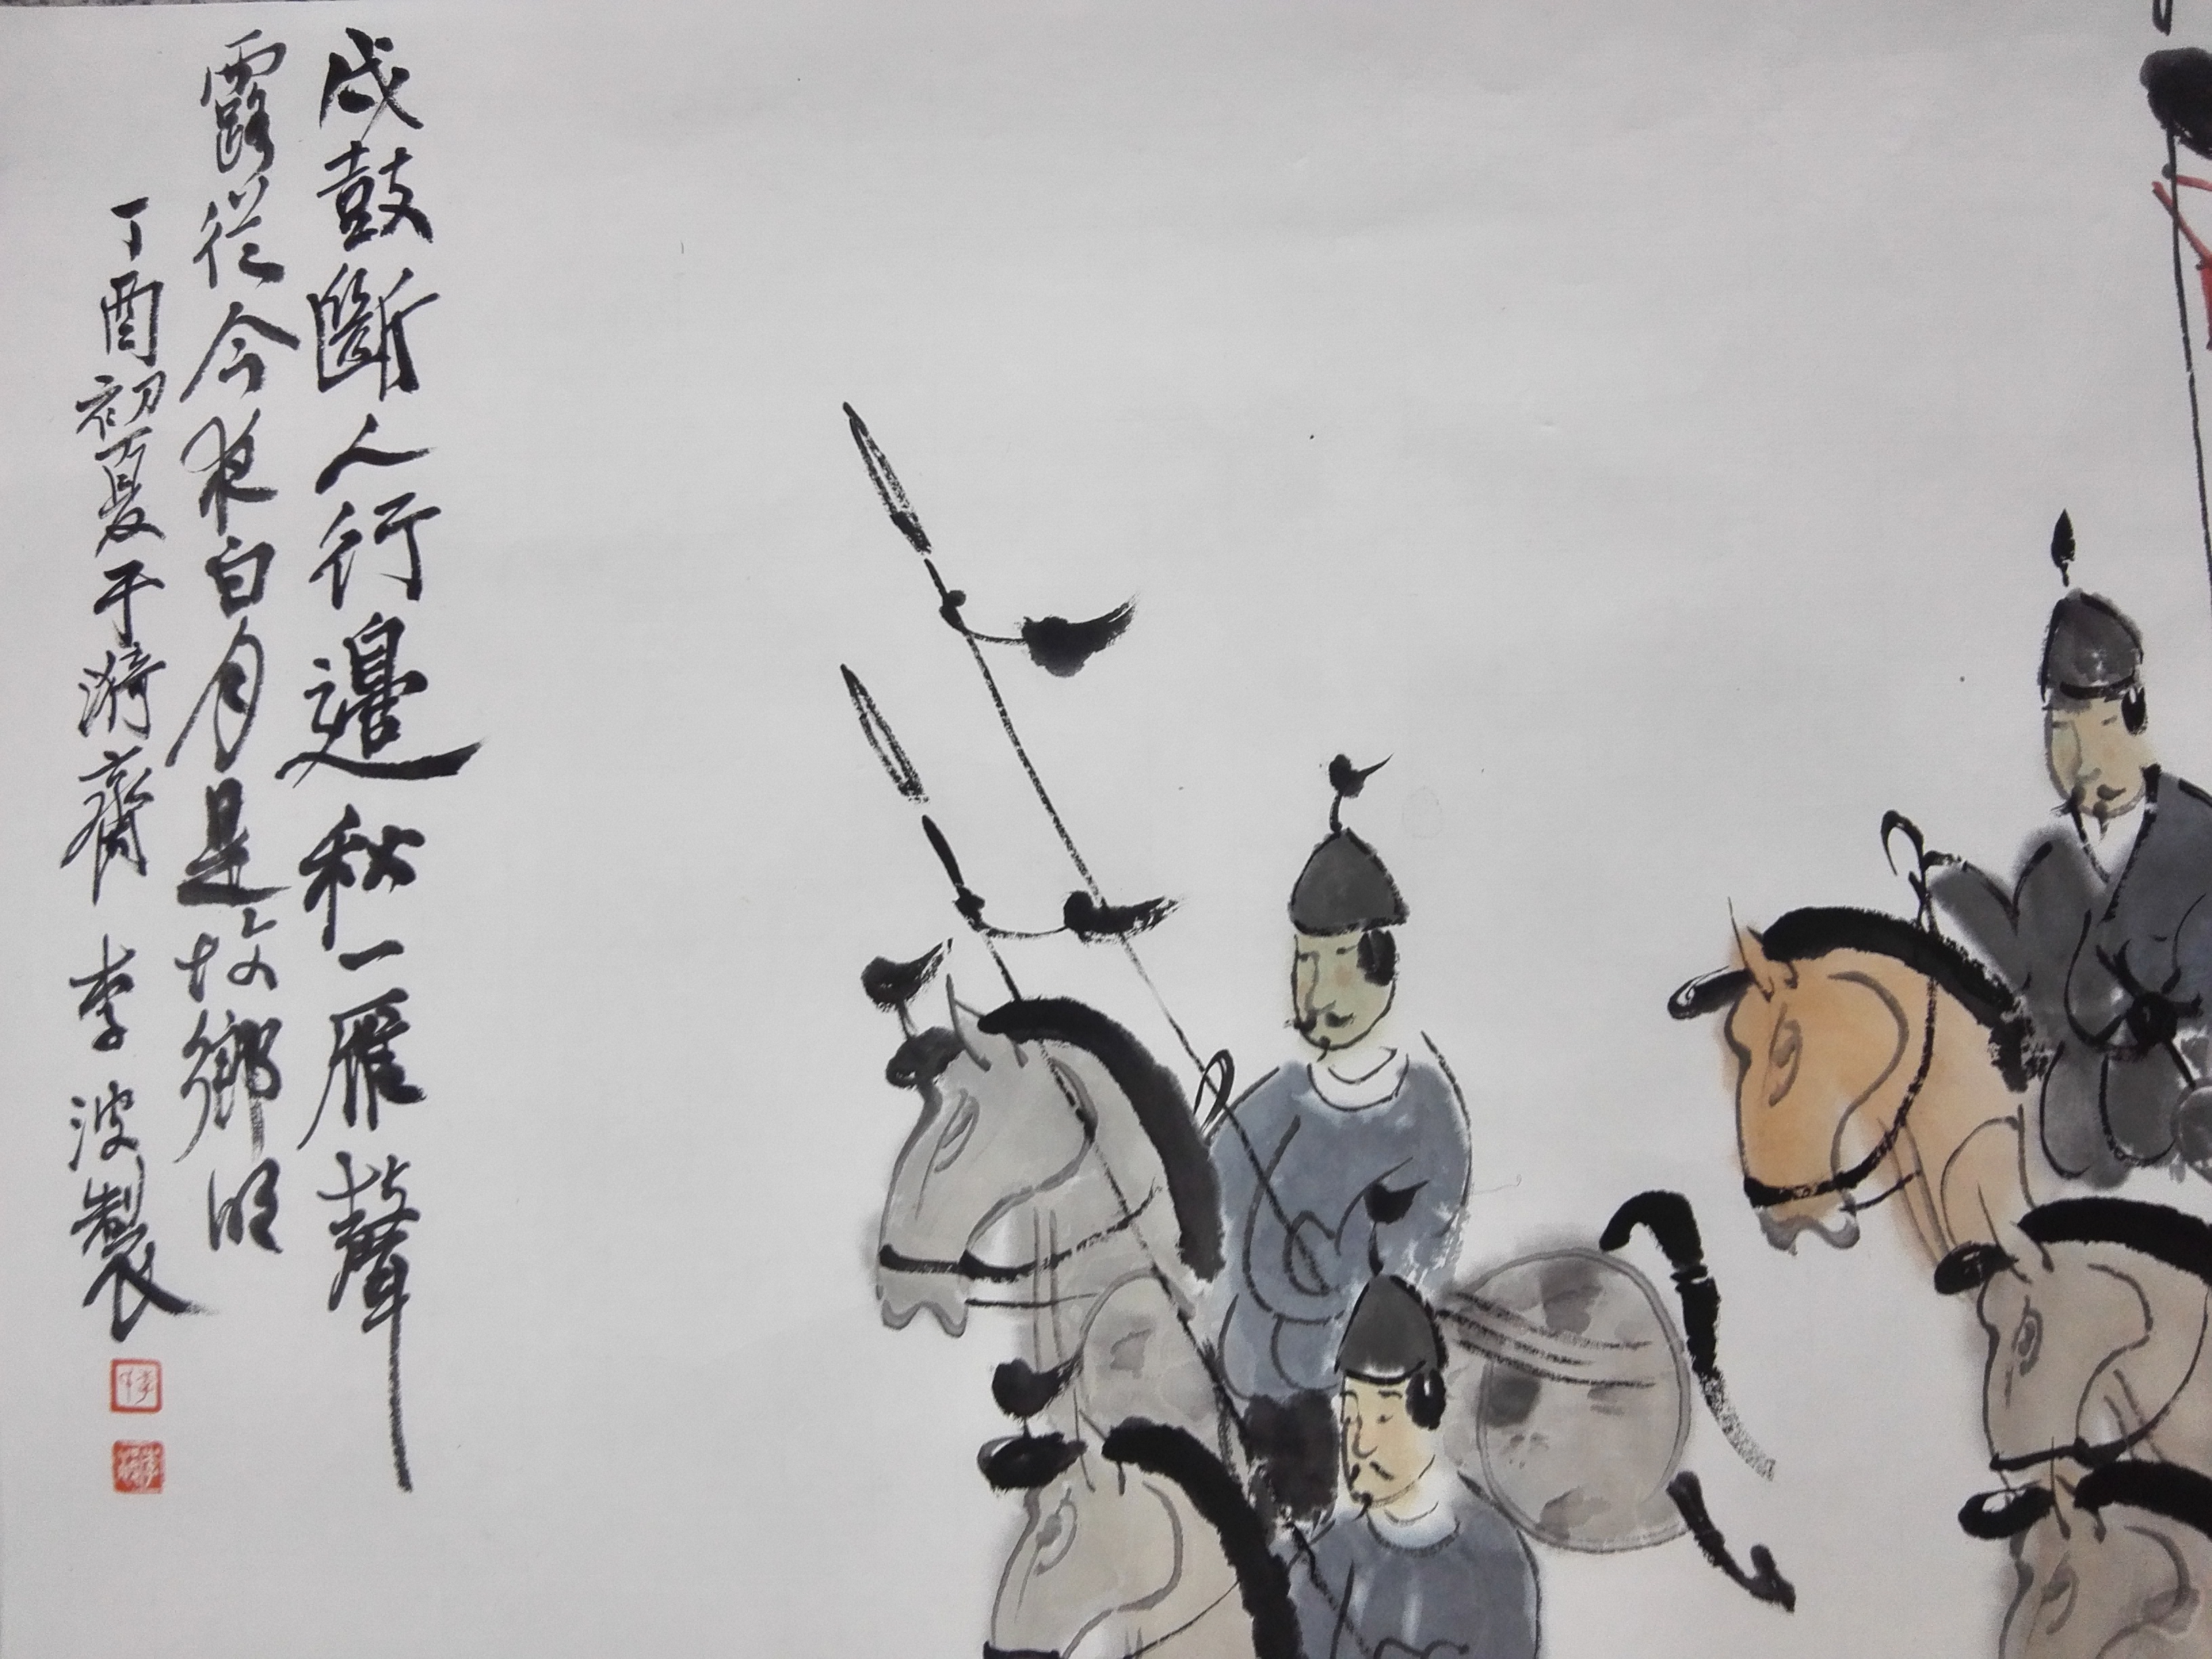 戍鼓斷人行邊秋一雁聲
露從今夜白月是故鄉明
丁酉初夏于漪齋李波製